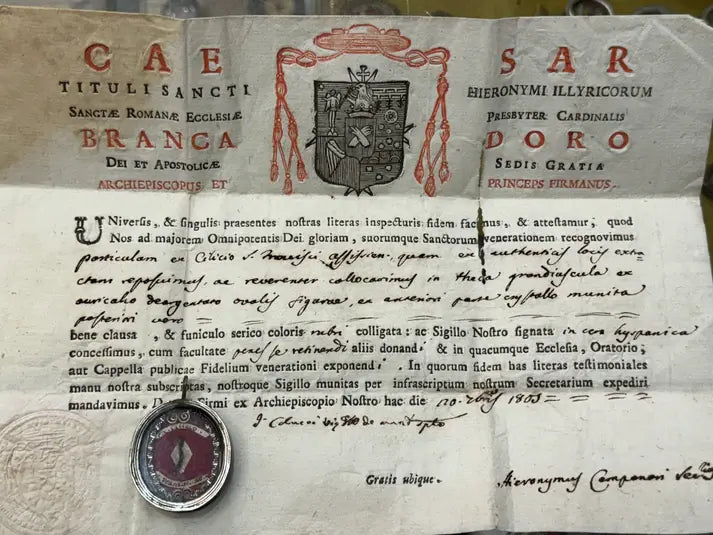 CAESAR
TITULI SANCTI HIERONYMI ILLYRICORUM
SANCTÆ ROMANÆ ECCLESIÆ PRESBYTER CARDINALIS
BRANCADORO
DEI ET APOSTOLICÆ SEDIS GRATIA
ARCHIEPISCOPUS ET PRINCEPS FIRMANUS
UNiversis, & singulis praesentes nostras literas inspecturis fidem facimus, & attestamur, quod
Nos ad majorem Omnipotentis Dei gloriam, suorumque Sanctorum venerationem recognovimus
particulam ex Cilicio S. Francisci Assisien. quam ex authenticis locis extra-
ctam reposuimus, ac reverenter collocavimus in theca grandiuscula ex
auricalco deargentato ovalis figurae, ex anteriori parte crystallo munita
posteriori vero
bene clausa, & funiculo serico coloris rubri colligata: ac Sigillo Nostro signata in cera hyspanica
concessimus, cum facultate penes se retinendi aliis donandi & in quacumque Ecclesia, Oratorio,
aut Cappella publicae Fidelium venerationi exponendi. In quorum fidem has literas testimoniales
manu nostra subscriptas, nostroque Sigillo munitas per infrascriptum nostrum Secretarium expediri
mandavimus. Firmi ex Archiepiscopio Nostro hac die 1803
Gratis ubique.
Hieronymus